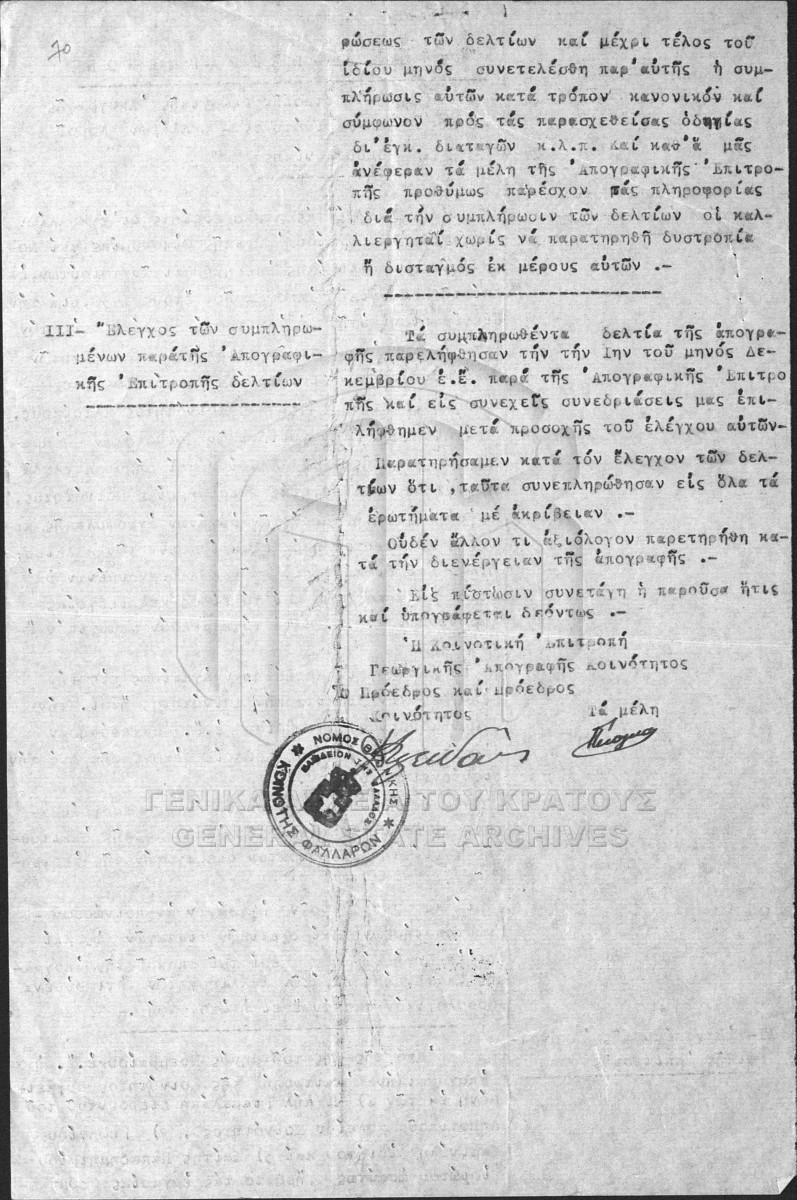 70
ρώσεως τῶν δελτίων καί μέχρι τέλος τοῦ
ἰδίου μηνός συνετελέσθη παρ'αὐτῆς ἡ συμ-
πλήρωσις αὐτῶν κατά τρόπον κανονικόν καί
σύμφωνον πρός τάς παρασχεθείσας ὁδηγίας
δι'ἐγκ. διαταγῶν κ.λ.π. Καί καθ'ἅ μᾶς
ἀνέφεραν τά μέλη τῆς Ἀπογραφικῆς Ἐπιτρο-
πῆς προθύμως παρέσχον τάς πληροφορίας
διά τήν συμπλήρωσιν τῶν δελτίων οἱ καλ-
λιεργηταί χωρίς νά παρατηρηθῆ δυστροπία
ἤ δισταγμός ἐκ μέρους αὐτῶν .-
III- Ἔλεγχος τῶν συμπληρω-
μένων παράτῆς Ἀπογραφι-
κῆς Ἐπιτροπῆς δελτίων
Τά συμπληρωθέντα δελτία τῆς ἀπογρα-
φῆς παρελήφθησαν τήν τήν Iην τοῦ μηνός Δε-
κεμβρίου ἐ.ἔ. παρά τῆς Ἀπογραφικῆς Ἐπιτρο
πῆς καί εἰς συνεχεῖς συνεδριάσεις μας ἐπι-
λήφθημεν μετά προσοχῆς τοῦ ἐλέγχου αὐτῶν-
Παρατηρήσαμεν κατά τόν ἔλεγχον τῶν δελ-
τίων ὅτι ,ταῦτα συνεπληρώθησαν εἰς ὅλα τά
ἐρωτήματα μέ ἀκρίβειαν .-
Οὐδέν ἄλλον τι ἀξιόλογον παρετηρήθη κα-
τά τήν διενέργειαν τῆς ἀπογραφῆς .-
Εἰς πίστωσιν συνετάγη ἡ παροῦσα ἥτις
καί ὑπογράφεται δεόντως .-
Ἡ Κοινοτική Ἐπιτροπή
Γεωργικῆς Ἀπογραφῆς Κοινότητος
Ὁ Πρόεδρος καί Πρόεδρος
Κοινότητος Τά μέλη
ΝΟΜΟΣ ΘΕ/ΝΙΚΗΣ
ΚΟΙΝΟΤΗΣ ΦΑΛΛΑΡΩΝ
ΒΑΣΙΛΕΙΟΝ ΤΗΣ ΕΛΛΑΔΟΣ
ΓΕΝΙΚΑ ΑΡΧΕΙΑ ΤΟΥ ΚΡΑΤΟΥΣ
GENERAL STATE ARCHIVES